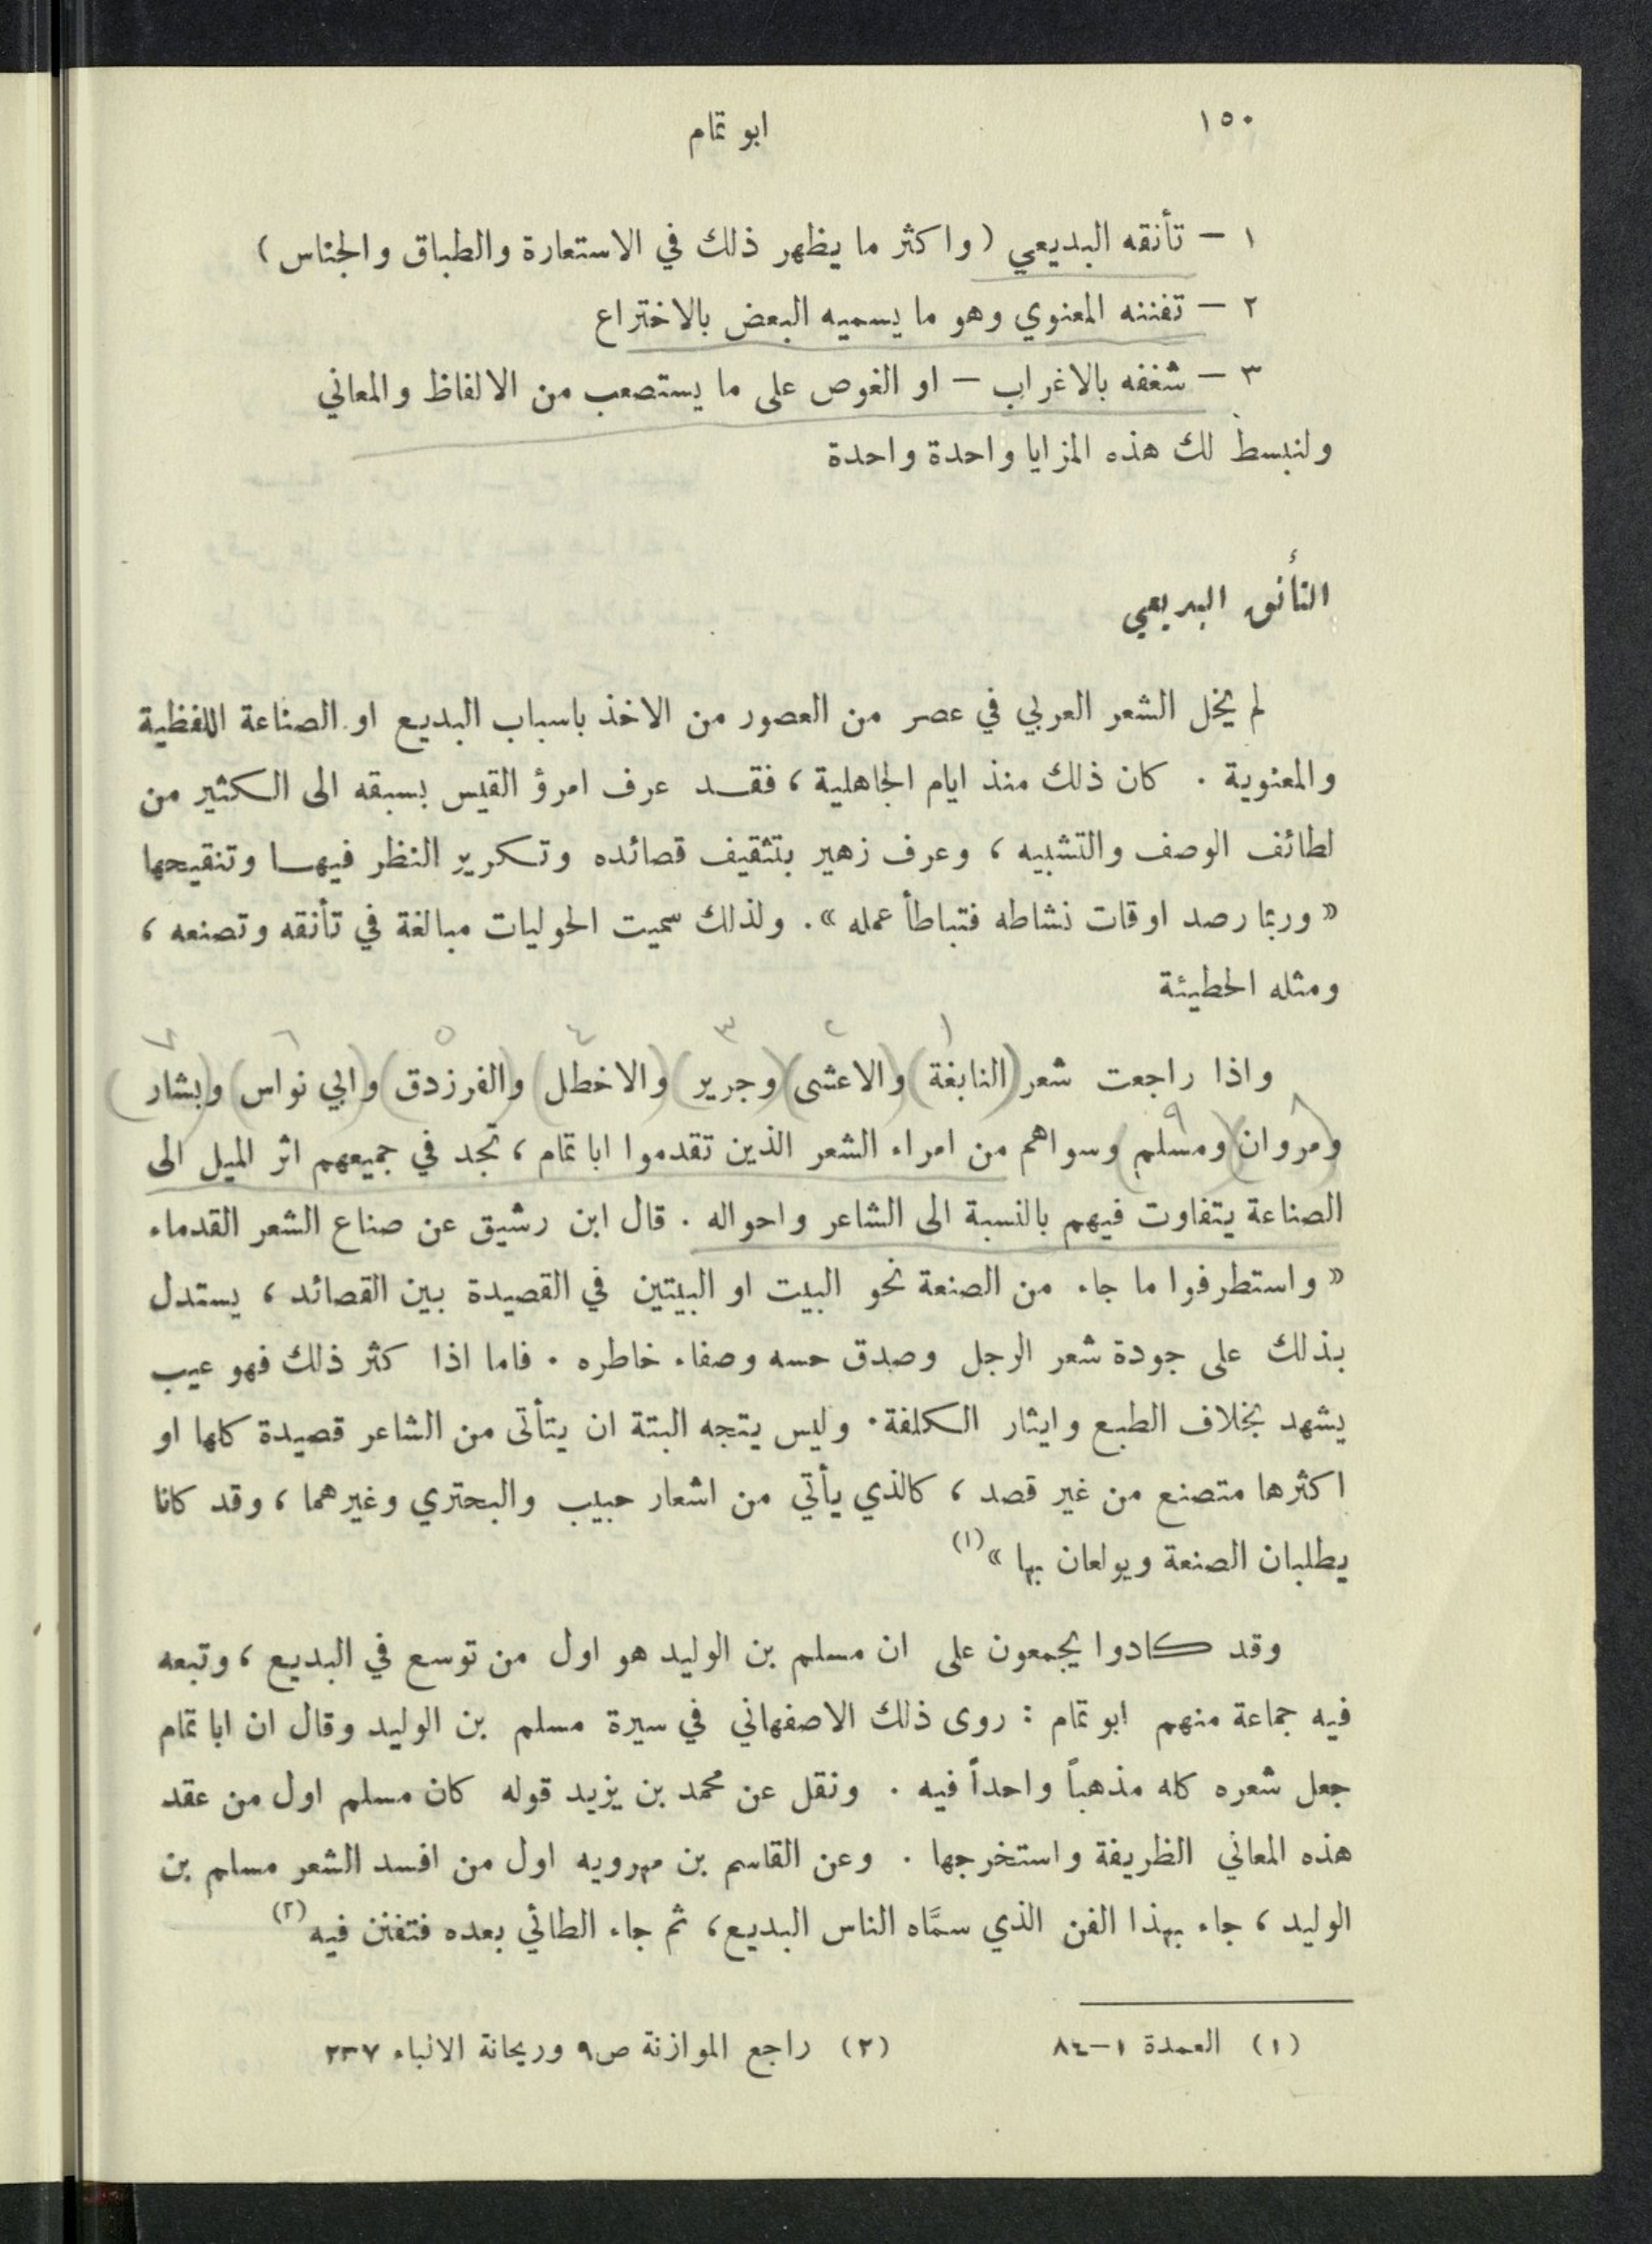 ١٥٠
ابو تمام
١ – تأنقه البديعي ( واكثر ما يظهر ذلك في الاستعارة والطباق والجناس )
٢ – تفننه المعنوي وهو ما يسميه البعض بالاختراع
٣ – شغفه بالاغراب – او الغوص على ما يستصعب من الالفاظ والمعاني
ولنبسط لك هذه المزايا واحدة واحدة
التأنق البديعي
لم يخل الشعر العربي في عصر من العصور من الاخذ باسباب البديع او الصناعة اللفظية
والمعنوية . كان ذلك منذ ايام الجاهلية ، فقد عرف امرؤ القيس بسبقه الى الكثير من
لطائف الوصف والتشبيه ، وعرف زهير بتثقيف قصائده وتكرير النظر فيها وتنقيحها
« وربما رصد اوقات نشاطه فتباطأ عمله » . ولذلك سميت الحوليات مبالغة في تأنقه وتصنعه ،
ومثله الحطيئة
١ ٢ ٣ ٤ ٥ ٦ ٧
واذا راجعت شعر (النابغة) و(الاعشى) (وجرير) (والاخطل) و(الفرزدق) و(ابي نواس) و(بشار)
٨ ٩
(ومروان) (ومسلم) وسواهم من امراء الشعر الذين تقدموا ابا تمام ، تجد في جميعهم اثر الميل الى
الصناعة يتفاوت فيهم بالنسبة الى الشاعر واحواله . قال ابن رشيق عن صناع الشعر القدماء
« واستطرفوا ما جاء من الصنعة نحو البيت او البيتين في القصيدة بين القصائد ، يستدل
بذلك على جودة شعر الرجل وصدق حسه وصفاء خاطره . فاما اذا كثر ذلك فهو عيب
يشهد بخلاف الطبع وايثار الكلفة . وليس يتجه البتة ان يتأتى من الشاعر قصيدة كلها او
اكثرها متصنع من غير قصد ، كالذي يأتي من اشعار حبيب والبحتري وغيرهما ، وقد كانا
يطلبان الصنعة ويولعان بها » (١)
وقد كادوا يجمعون على ان مسلم بن الوليد هو اول من توسع في البديع ، وتبعه
فيه جماعة منهم ابو تمام : روى ذلك الاصفهاني في سيرة مسلم بن الوليد وقال ان ابا تمام
جعل شعره كله مذهباً واحداً فيه . ونقل عن محمد بن يزيد قوله كان مسلم اول من عقد
هذه المعاني الظريفة واستخرجها . وعن القاسم بن مهرويه اول من افسد الشعر مسلم بن
الوليد ، جاء بهذا الفن الذي سمَّاه الناس البديع ، ثم جاء الطائي بعده فتفنن فيه (٢)
(١) العمدة ١–٨٤
(٢) راجع الموازنة ص٩ وريحانة الالباء ٢٣٧